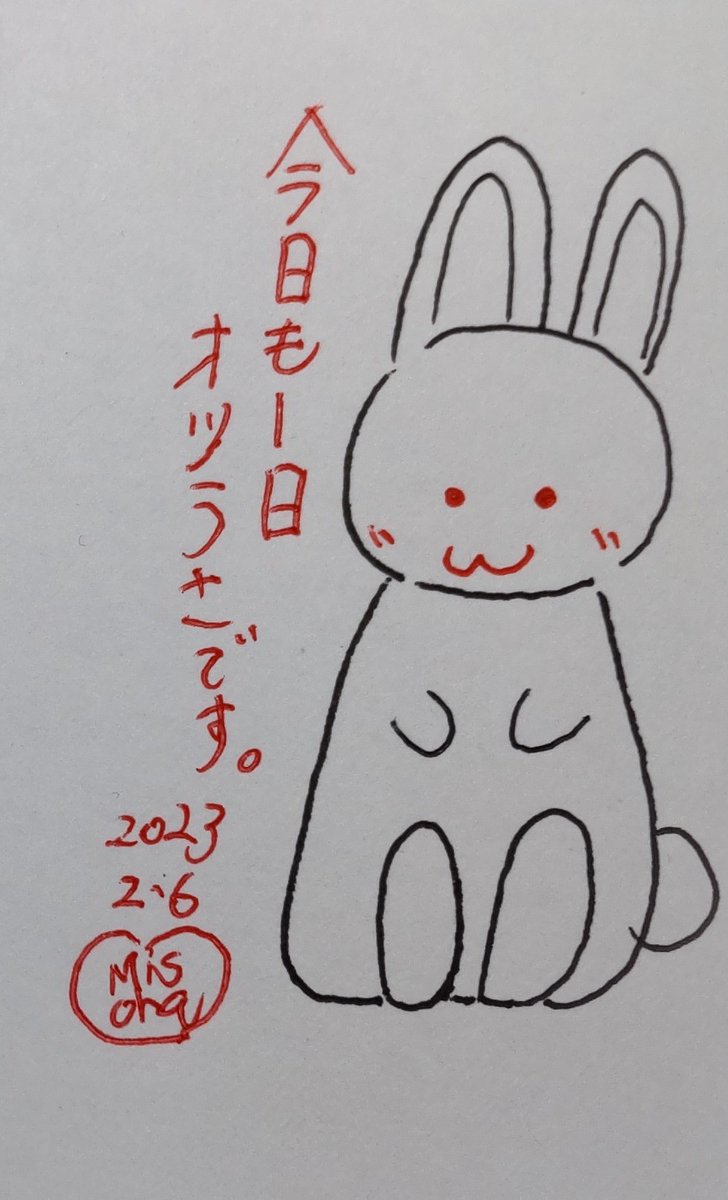 今日も一日
オツうさです。
2023
2.6
Mis
ona